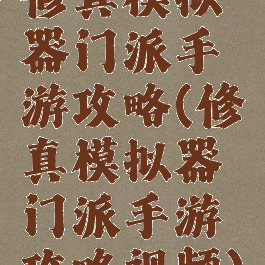 修真模拟
器门派手
游攻略(修
真模拟器
门派手游
攻略视频)